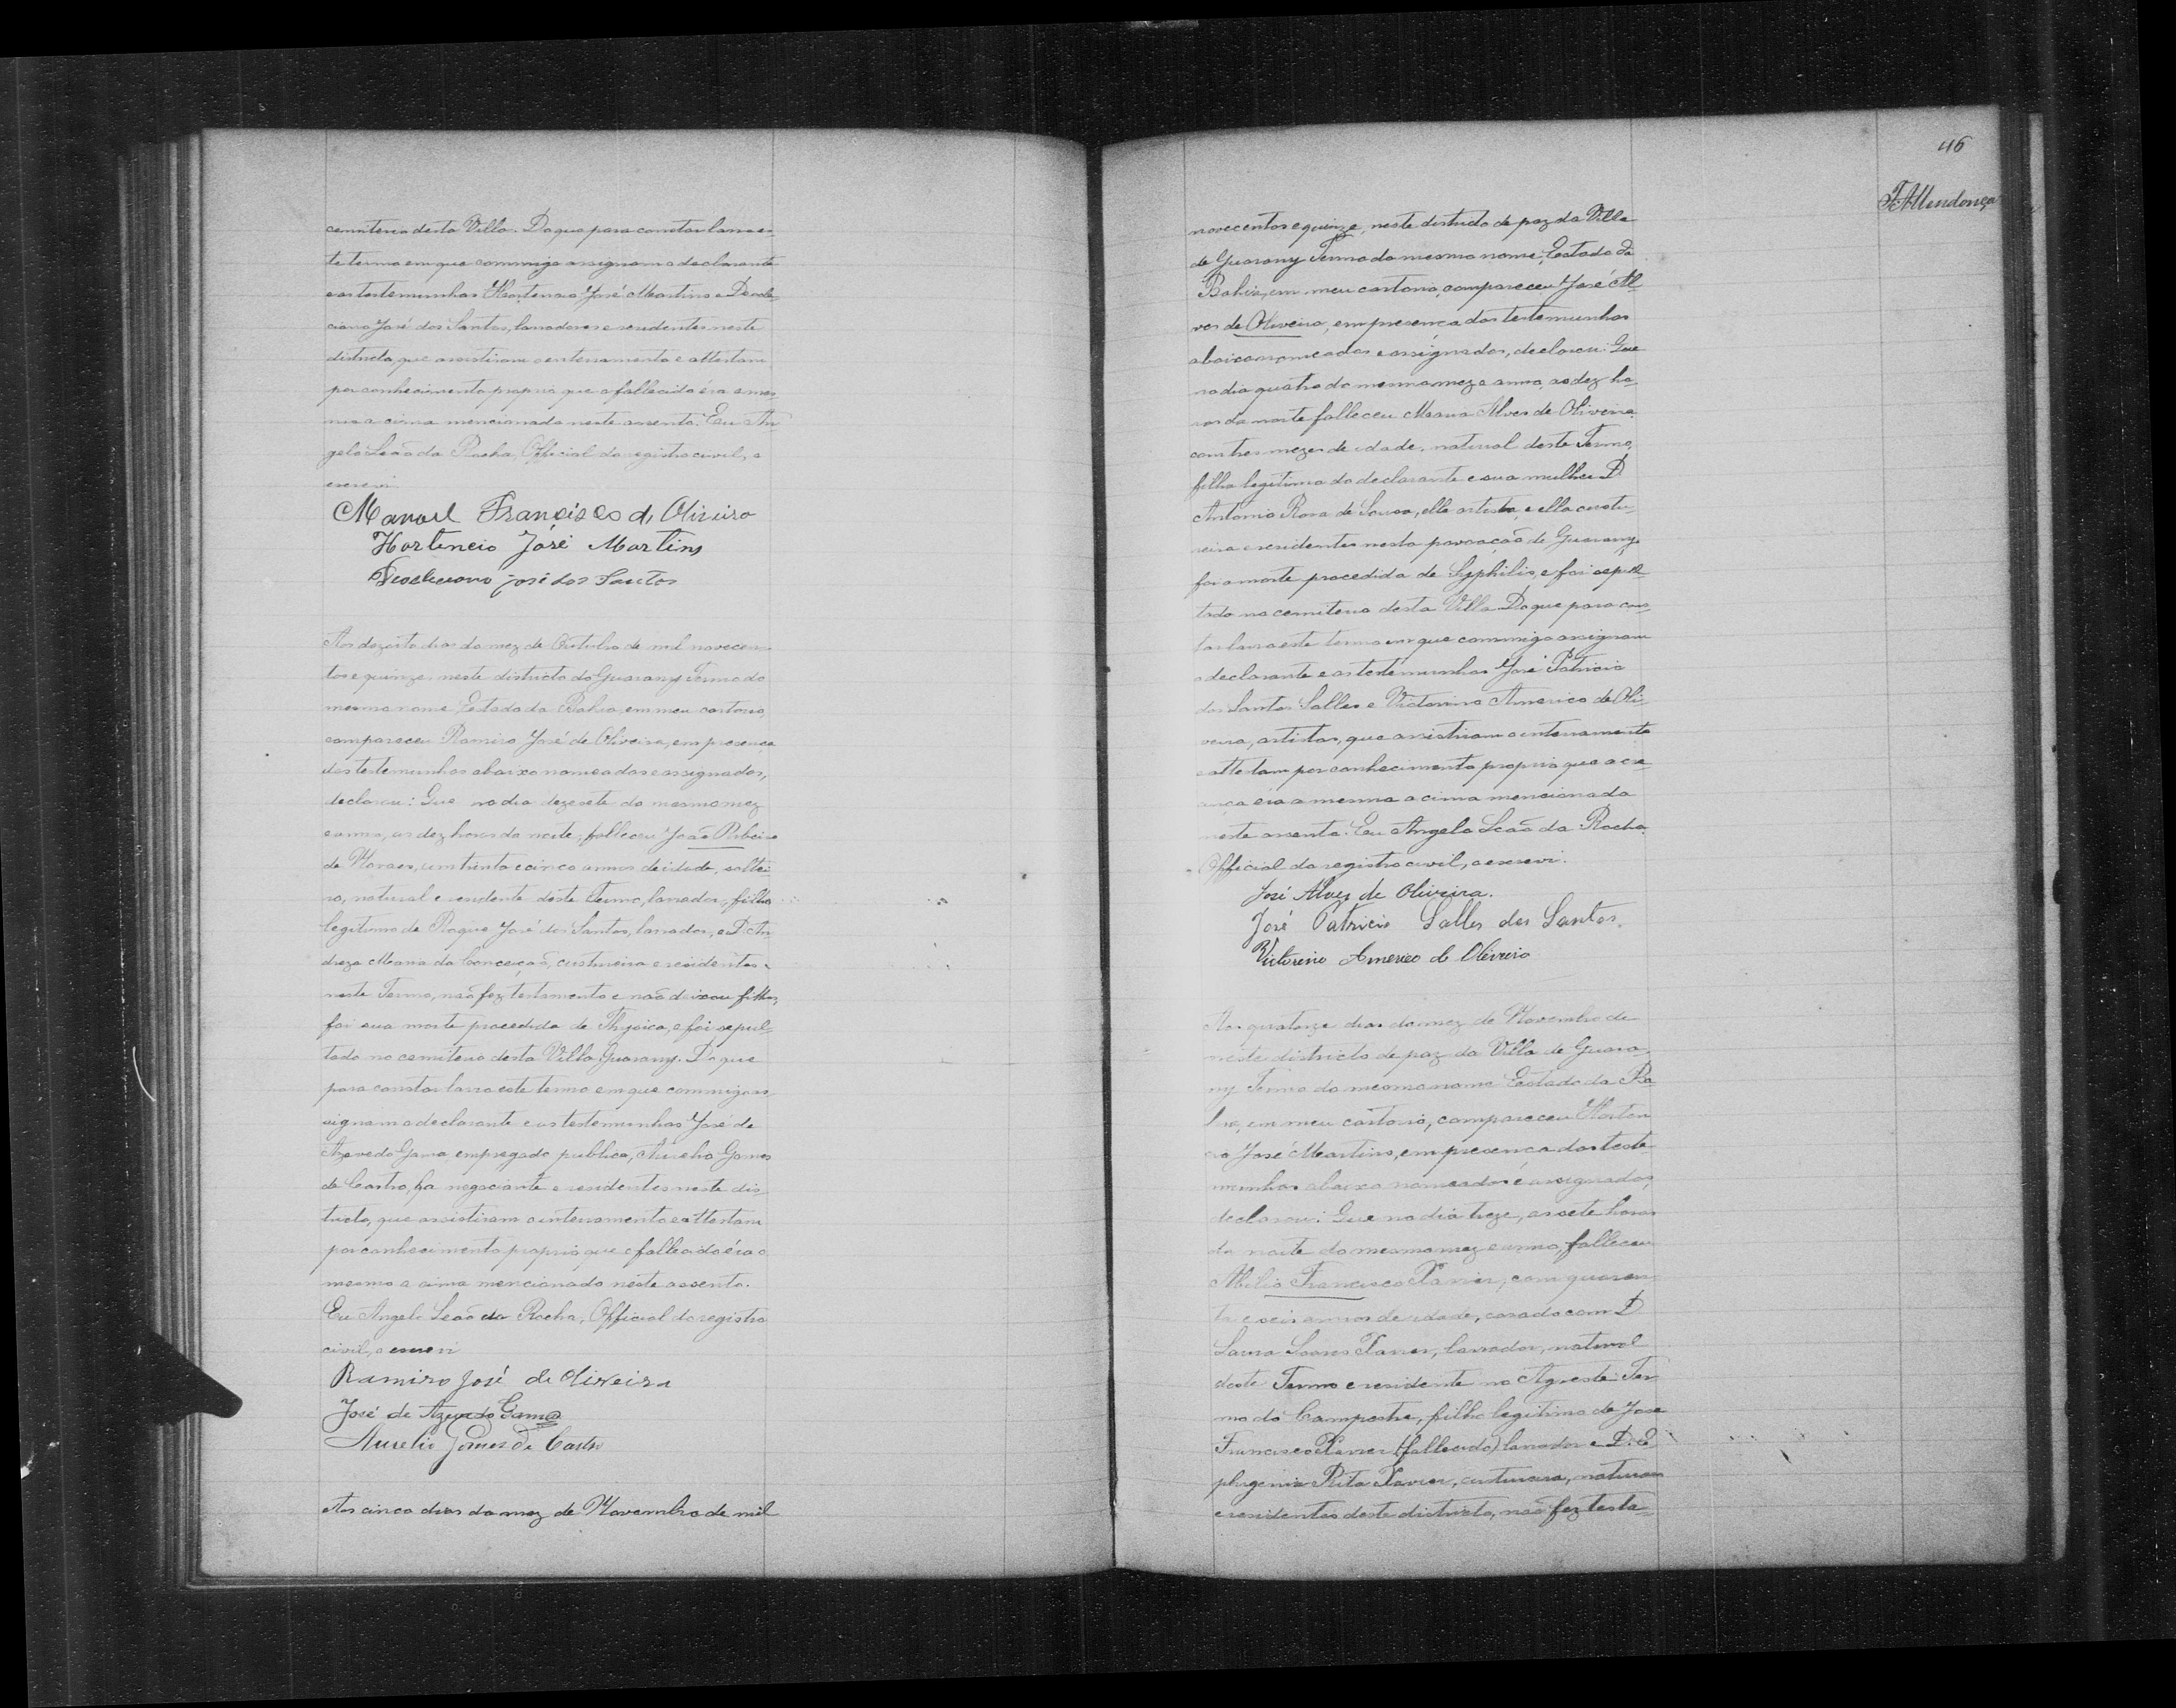 cemiterio desta Villa. Do que para constar lavro es-
te termo em que commigo assignam o declarante
e as testemunhas Hortencio José Martins e Deocle-
ciano José dos Santos, lavradores e residentes neste
districto, que assistiram o enterramento e attestam
por conhecimento proprio que a fallecida éra a mes-
ma a cima mencionada neste assento. Eu An-
gelo Leão da Rocha, Official do registro civil, o
escrevi.
Manoel Francisco de Oliveira
Hortencio José Martins
Deocleciano José dos Santos
Aos dezoito dias do mez de Outubro de mil novecen-
tos e quinze, neste districto do Guarany Termo do
mesmo nome Estado da Bahia, em meu cartorio,
compareceu Ramiro José de Oliveira, em presença
das testemunhas abaixo nomeadas e assignadas,
declarou: Que no dia dezesete do mesmo mez
e anno, as dez horas da noite, falleceu João Ribeiro
de Moraes, com trinta e cinco annos de idade, soltei-
ro, natural e residente deste Termo, lavrador, filho
legitimo de Roque José dos Santos, lavrador, e D. An-
dreza Maria da Conceição, custureira e residentes
neste Termo, não fez testamento e não deixou filhos,
foi sua morte procedida de Thysica, e foi sepul-
tado no cemiterio desta Villa Guarany. Do que
para constar lavro este termo em que commigo as-
signam o declarante e as testemunhas José de
Azevedo Gama empregado publico, Aurelio Gomes
de Castro, negociante e residentes neste dis-
tricto, que assistiram o enterramento e attestam
por conhecimento proprio que o fallecido éra o
mesmo a cima mencionado neste assento.
Eu Angelo Leão da Rocha, Official do registro
civil, o escrevi
Ramiro José de Oliveira
José de Azevedo Gama
Aurelio Gomes de Castro
Aos cinco dias do mez de Novembro de mil
46
Mendonça
novecentos e quinze, neste districto de paz da Villa
de Guarany Termo do mesmo nome, Estado da
Bahia, em meu cartorio, compareceu José Al-
ves de Oliveira, em presença das testemunhas
abaixo nomeadas e assignadas, declarou: Que
no dia quatro do mesmo mez e anno, as dez ho-
ras da noite falleceu Maria Alves de Oliveira
com tres mezes de idade, natural deste Termo,
filha legitima do declarante e sua mulher D
Antonia Rosa de Sousa, elle artista, e ella custu-
reira e residentes nesta povoação de Guarany,
foi a morte procedida de Syphilis, e foi sepul-
tada no cemiterio desta Villa. Do que para cons-
tar lavro este termo em que commigo assignam
o declarante e as testemunhas José Patricio
dos Santos Salles e Victorino Americo de Oli-
veira, artistas, que assistiram o enterramento
e attestam por conhecimento proprio que a cre-
ança éra a mesma a cima mencionada
neste assento. Eu Angelo Leão da Rocha
Official do registro civil, o escrevi.
José Alves de Oliveira.
José Patricio Salles dos Santos.
Victorino Americo de Oliveira
Aos quatorze dias do mez de Novembro de
neste districto de paz da Villa de Guara-
ny Termo do mesmo nome Estado da Ba-
hia, em meu cartorio, compareceu Horten-
cio José Martins, em presença das teste-
munhas abaixo nomeadas e assignadas,
declarou: Que no dia treze, as sete horas
da noite do mesmo mez e anno, falleceu
Abilio Francisco Xavier, com quaren-
ta e seis annos de idade, casado com D
Laura Soares Xavier, lavrador, natural
deste Termo e residente no Agreste Ter-
mo do Campestre, filho legitimo de José
Francisco Xavier (fallecido) lavrador e D. E-
phigenia Rita Xavier, custureira, naturaes
e residentes deste districto, não fez testa-